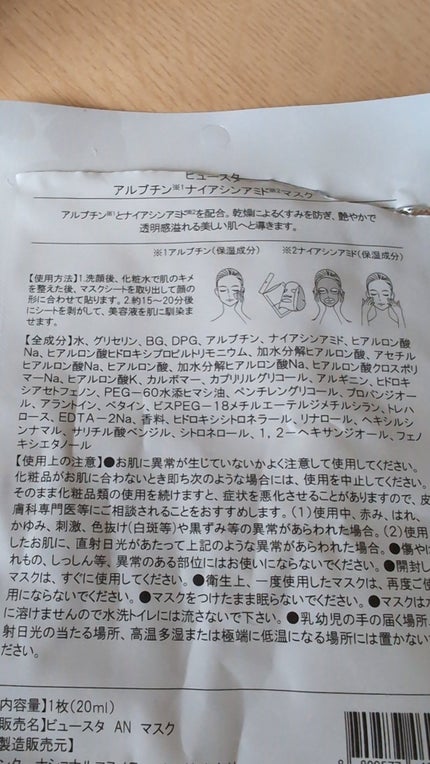 ビュースタ
アルブチン※1ナイアシンアミド※2マスク
アルブチン※1とナイアシンアミド※2を配合。乾燥によるくすみを防ぎ、艶やかで
透明感溢れる美しい肌へと導きます。
※1アルブチン(保湿成分) ※2ナイアシアミド(保湿成分)
【使用方法】1.洗顔後、化粧水で肌のキメ
を整えた後、マスクシートを取り出して顔の
形に合わせて貼ります。2.約15～20分後
にシートを剥がして、美容液を肌に馴染ま
せます。
【全成分】水、グリセリン、BG、DPG、アルブチン、ナイアシンアミド、ヒアルロン酸
Na、ヒアルロン酸ヒドロキシプロピルトリモニウム、加水分解ヒアルロン酸、アセチル
ヒアルロン酸Na、ヒアルロン酸、加水分解ヒアルロン酸Na、ヒアルロン酸クロスポリ
マーNa、ヒアルロン酸K、カルボマー、カプリリルグリコール、アルギニン、ヒドロキ
シアセトフェノン、PEG-60水添ヒマシ油、ペンチレングリコール、プロパンジオー
ル、アラントイン、ベタイン、ビスPEG-18メチルエーテルジメチルシラン、トレハ
ロース、EDTA-2Na、香料、ヒドロキシシトロネラール、リナロール、ヘキシルシ
ンナマル、サリチル酸ベンジル、シトロネロール、1,2-ヘキサンジオール、フェノ
キシエタノール
【使用上の注意】●お肌に異常が生じていないかよく注意して使用してください。
化粧品がお肌に合わないとき即ち次のような場合には、使用を中止してください。
そのまま化粧品類の使用を続けますと、症状を悪化させることがありますので、皮
膚科専門医等にご相談されることをおすすめします。(1)使用中、赤み、はれ、
かゆみ、刺激、色抜け(白斑等)や黒ずみ等の異常があらわれた場合。(2)使用
したお肌に、直射日光があたって上記のような異常があらわれた場合。●傷やは
れもの、しっしん等、異常のある部位にはお使いにならないでください。●開封し
マスクは、すぐに使用してください。●衛生上、一度使用したマスクは、再度ご使
用にならないでください。●マスクをつけたまま眠らないでください。●マスクは水
に溶けませんので水洗トイレには流さないで下さい。●乳幼児の手の届く場所、
射日光の当たる場所、高温多湿または極端に低温になる場所には置かない
ださい。
内容量】1枚(20ml)
販売名】ビュースタ AN マスク
製造販売元】